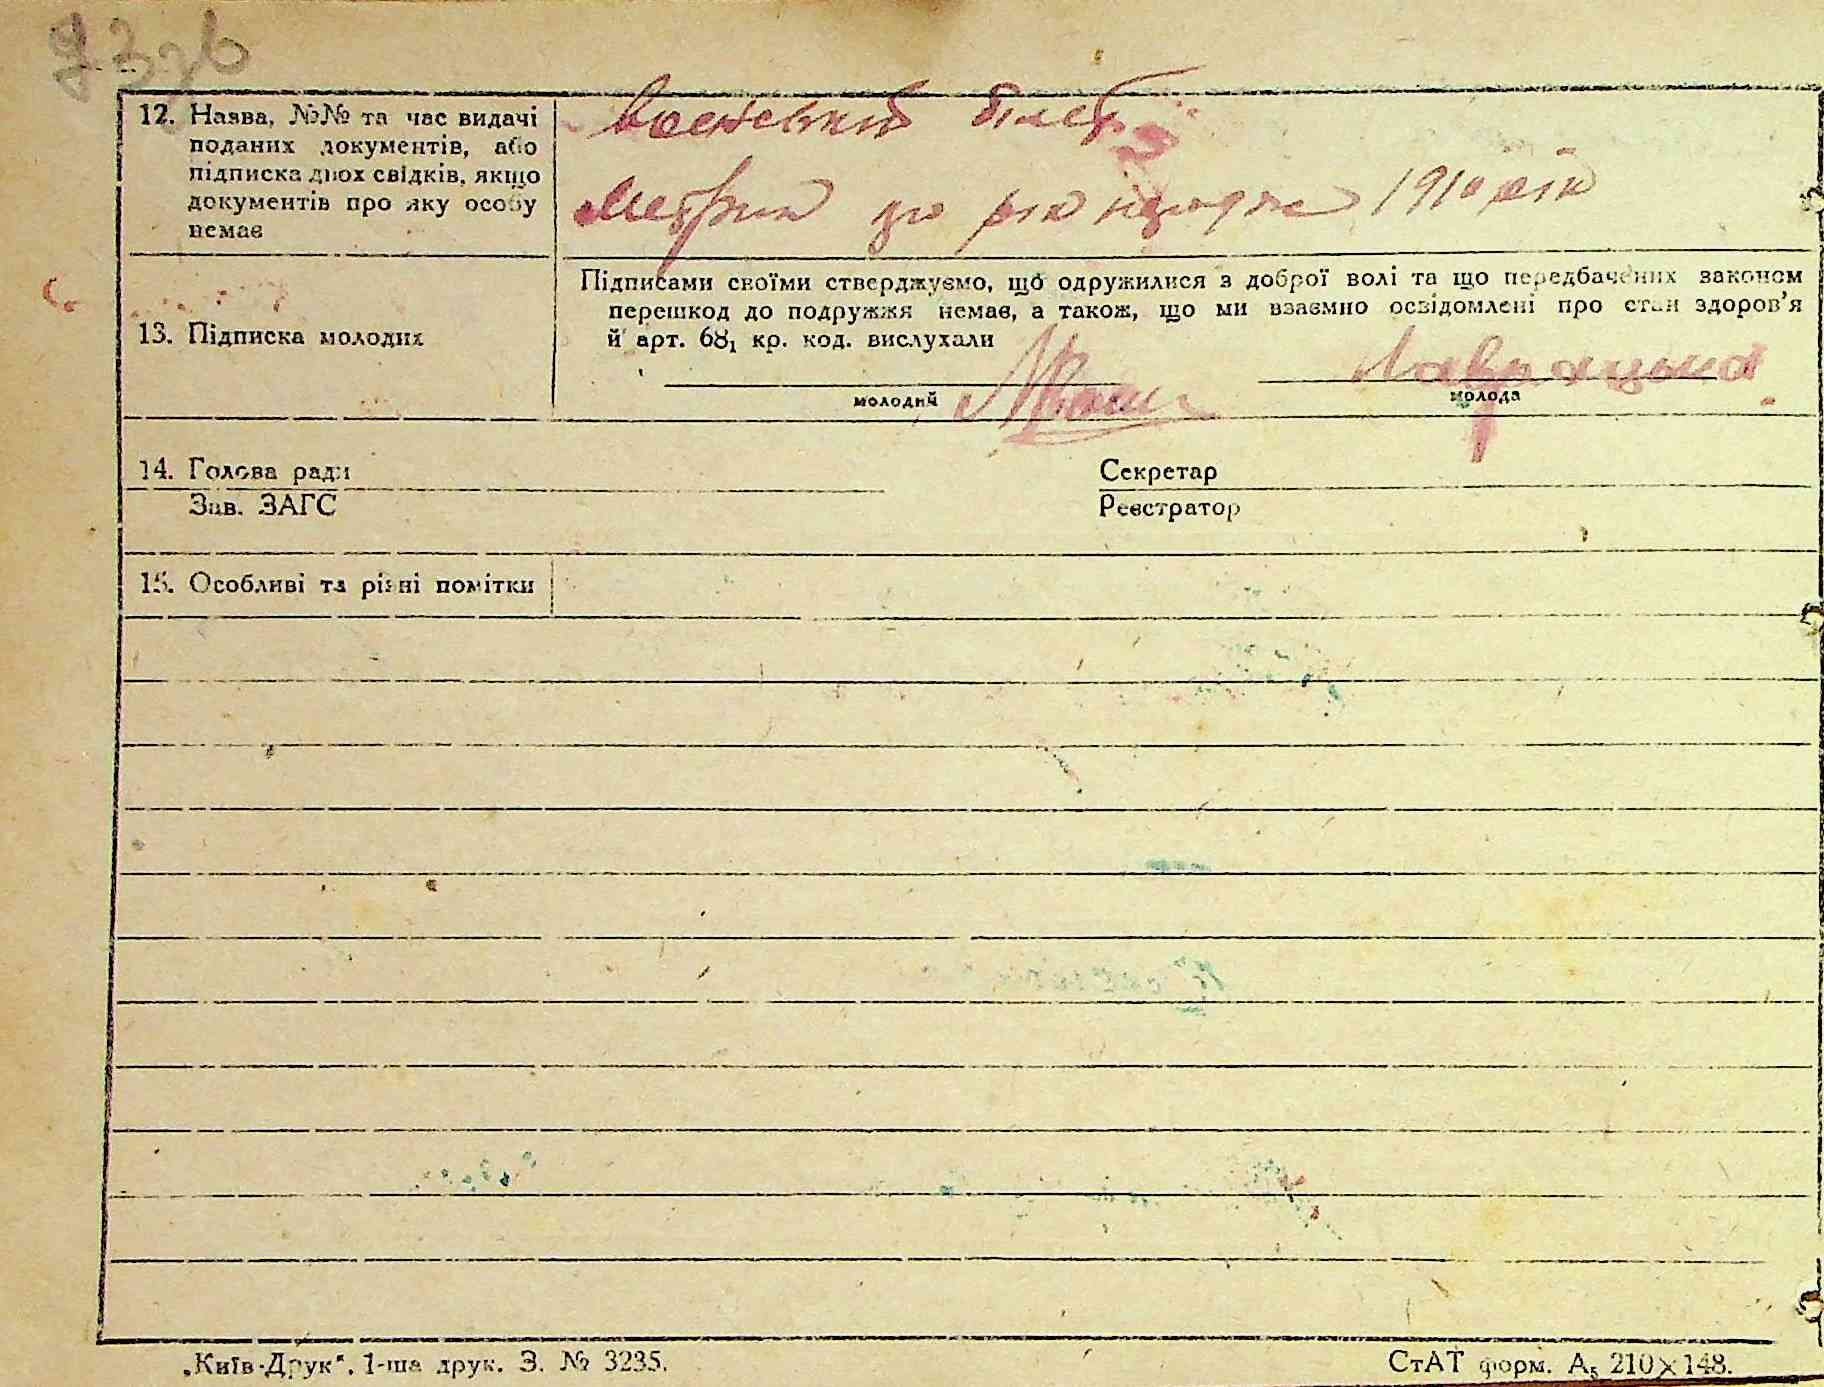 12. Назва, №№ та час видачі поданих документів, або підписка двох свідків, якщо документів про яку особу немає
воєнський білет
Метрик про рік народже 1910 рік
13. Підписка молодих
Підписами своїми стверджуємо, що одружилися з доброї волі та що передбачених законом
перешкод до подружжя немає, а також, що ми взаємно освідомлені про стан здоров'я
й арт. 68₁ кр. код. вислухали
молодий
Лаврацька
молода
14. Голова ради
Секретар
Зав. ЗАГС
Реєстратор
15. Особливі та різні помітки
„Київ-Друк“. 1-ша друк. З. № 3235.
СтАТ форм. А₅ 210×148.